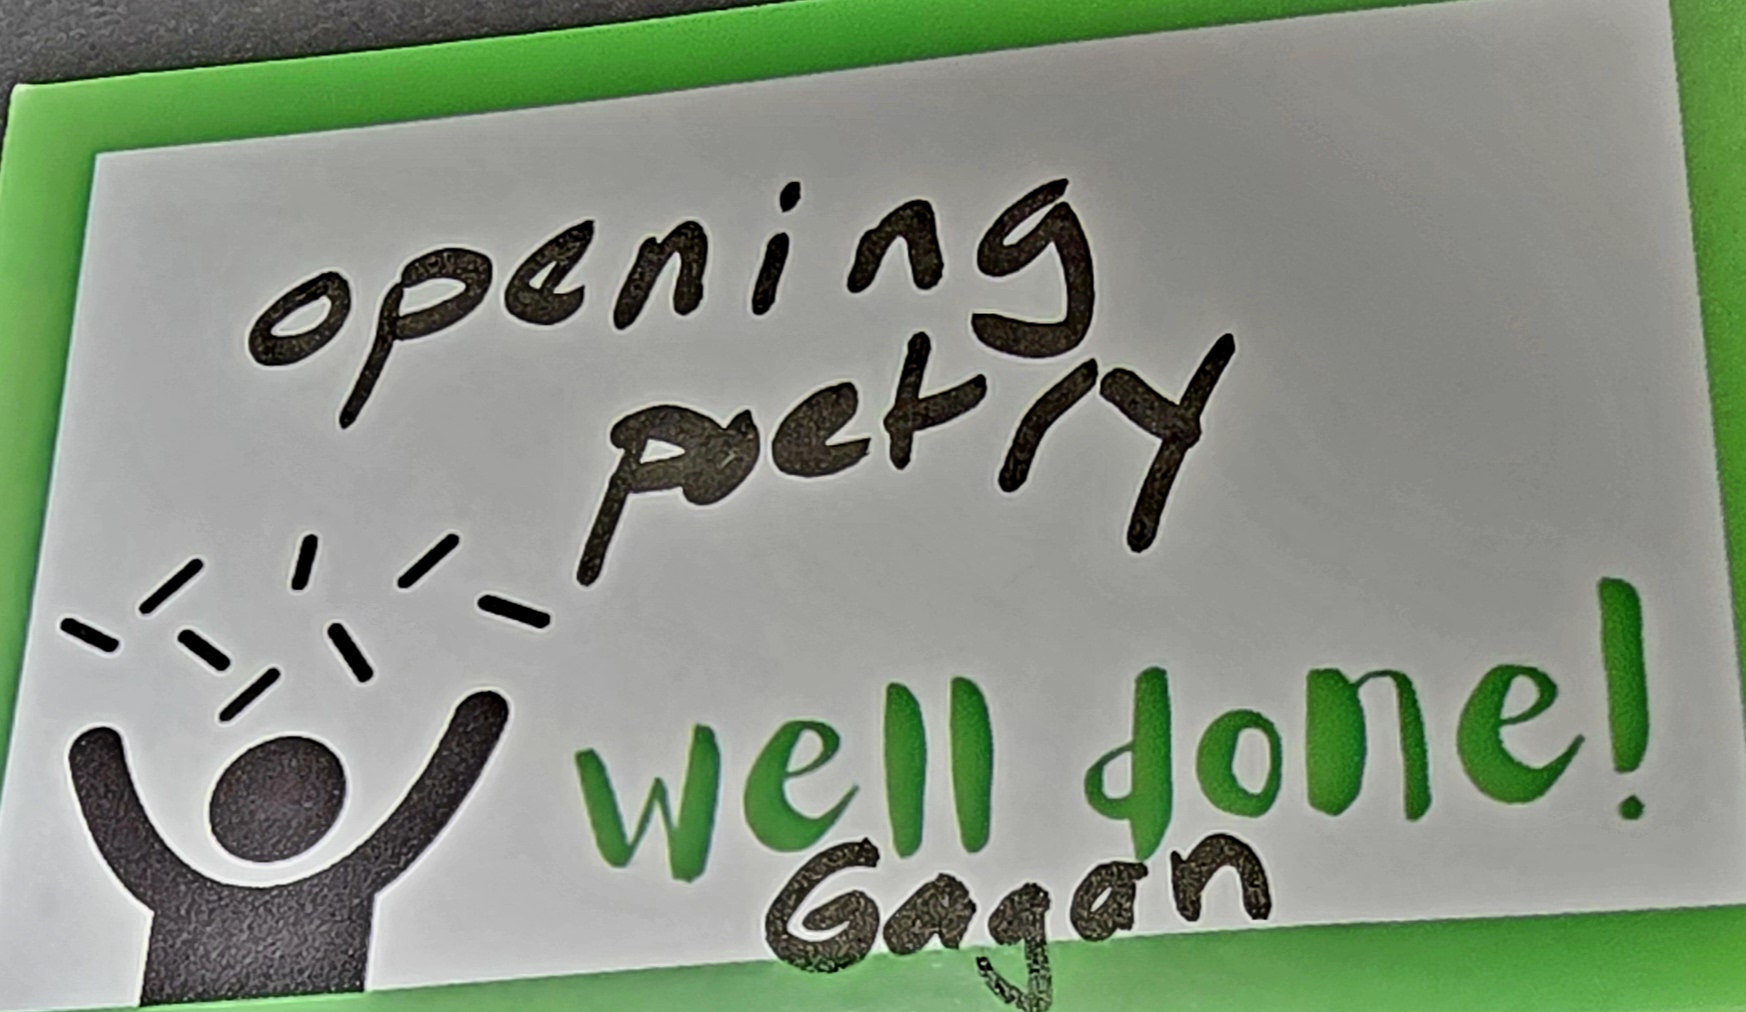 opening
poetry
well done!
Gagan